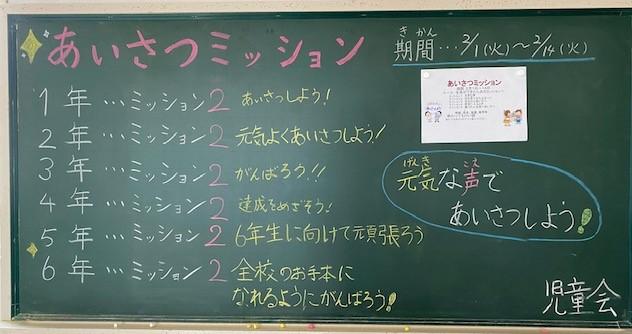 あいさつミッション
きかん
期間…2/1(火)～2/14(火)
1年…ミッション2 あいさつしよう!
2年…ミッション2 元気よくあいさつしよう!
3年…ミッション2 がんばろう!!
4年…ミッション2 達成をめざそう!
5年…ミッション2 6年生に向けて頑張ろう
6年…ミッション2 全校のお手本に
なれるようにがんばろう!!
あいさつミッション
げんき こえ
元気な声で
あいさつしよう!
児童会